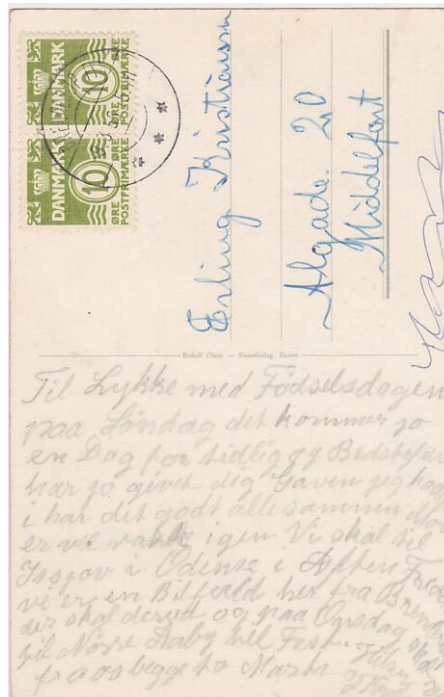 DANMARK
10
ØRE
POSTFRIMÆRKE
DANMARK
10
ØRE
POSTFRIMÆRKE
Erling Kristiansen
Algade. 20
Middelfart
Rudolf Olsen — Kunstforlag, Eneret
Til Lykke med Fødselsdagen
paa Søndag det kommer jo
en Dag for tidlig og Bedstefar
har jo givet dig Gaven jeg haa
i har det godt alle sammen
er vel igen Vi skal til
i Odense i Aften
vi er en Bilfuld her fra
der skal derud og paa Onsdag skal
til Nørre Aaby til Fest.
fra os begge to